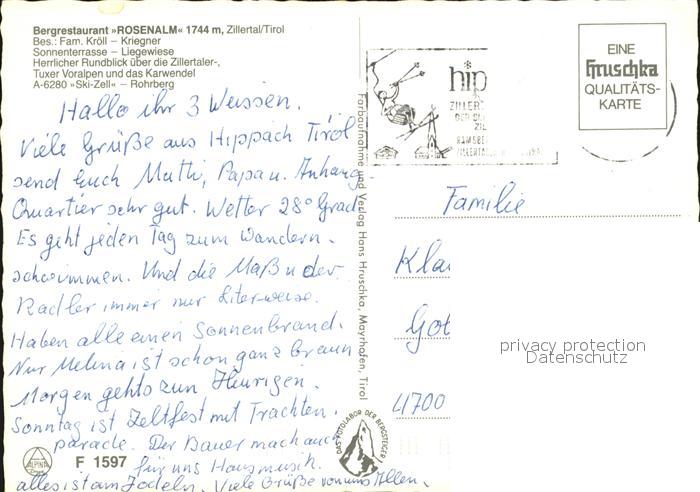 Bergrestaurant »ROSENALM« 1744 m, Zillertal/Tirol
Bes.: Fam. Kröll – Kriegner
Sonnenterrasse – Liegewiese
Herrlicher Rundblick über die Zillertaler-,
Tuxer Voralpen und das Karwendel
A-6280 »Ski-Zell« – Rohrberg
Hallo ihr 3 Weissen.
Viele Grüße aus Hippach Tirol
send Euch Mutti, Papa u. Anhang
Quartier sehr gut. Wetter 28° Grad
Es geht jeden Tag zum Wandern.
schwimmen. Und die Maß u der
Radler immer nur Literweise.
Haben alle einen Sonnenbrand.
Nur Melina ist schon ganz braun
Morgen gehts zum Heurigen.
Sonntag ist Zeltfest mit Trachten.
parade. Der Bauer mach auch
für uns Hausmusik.
alles ist am Jodeln. Viele Grüße von uns Allen.
ALPINA
F 1597
Farbaufnahme und Verlag Hans Hruschka, Mayrhofen, Tirol
DAS FOTOLABOR DER BERGSTEIGER
hip
ZILLER
EINE
Hruschka
QUALITÄTS-
KARTE
Familie
Kla
Got
4700
privacy protection
Datenschutz